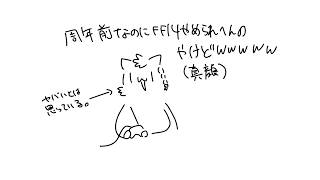 周年前なのにFF14やめられへんの
やけどwwwww
(真顔)
ヤバいとは
思っている。